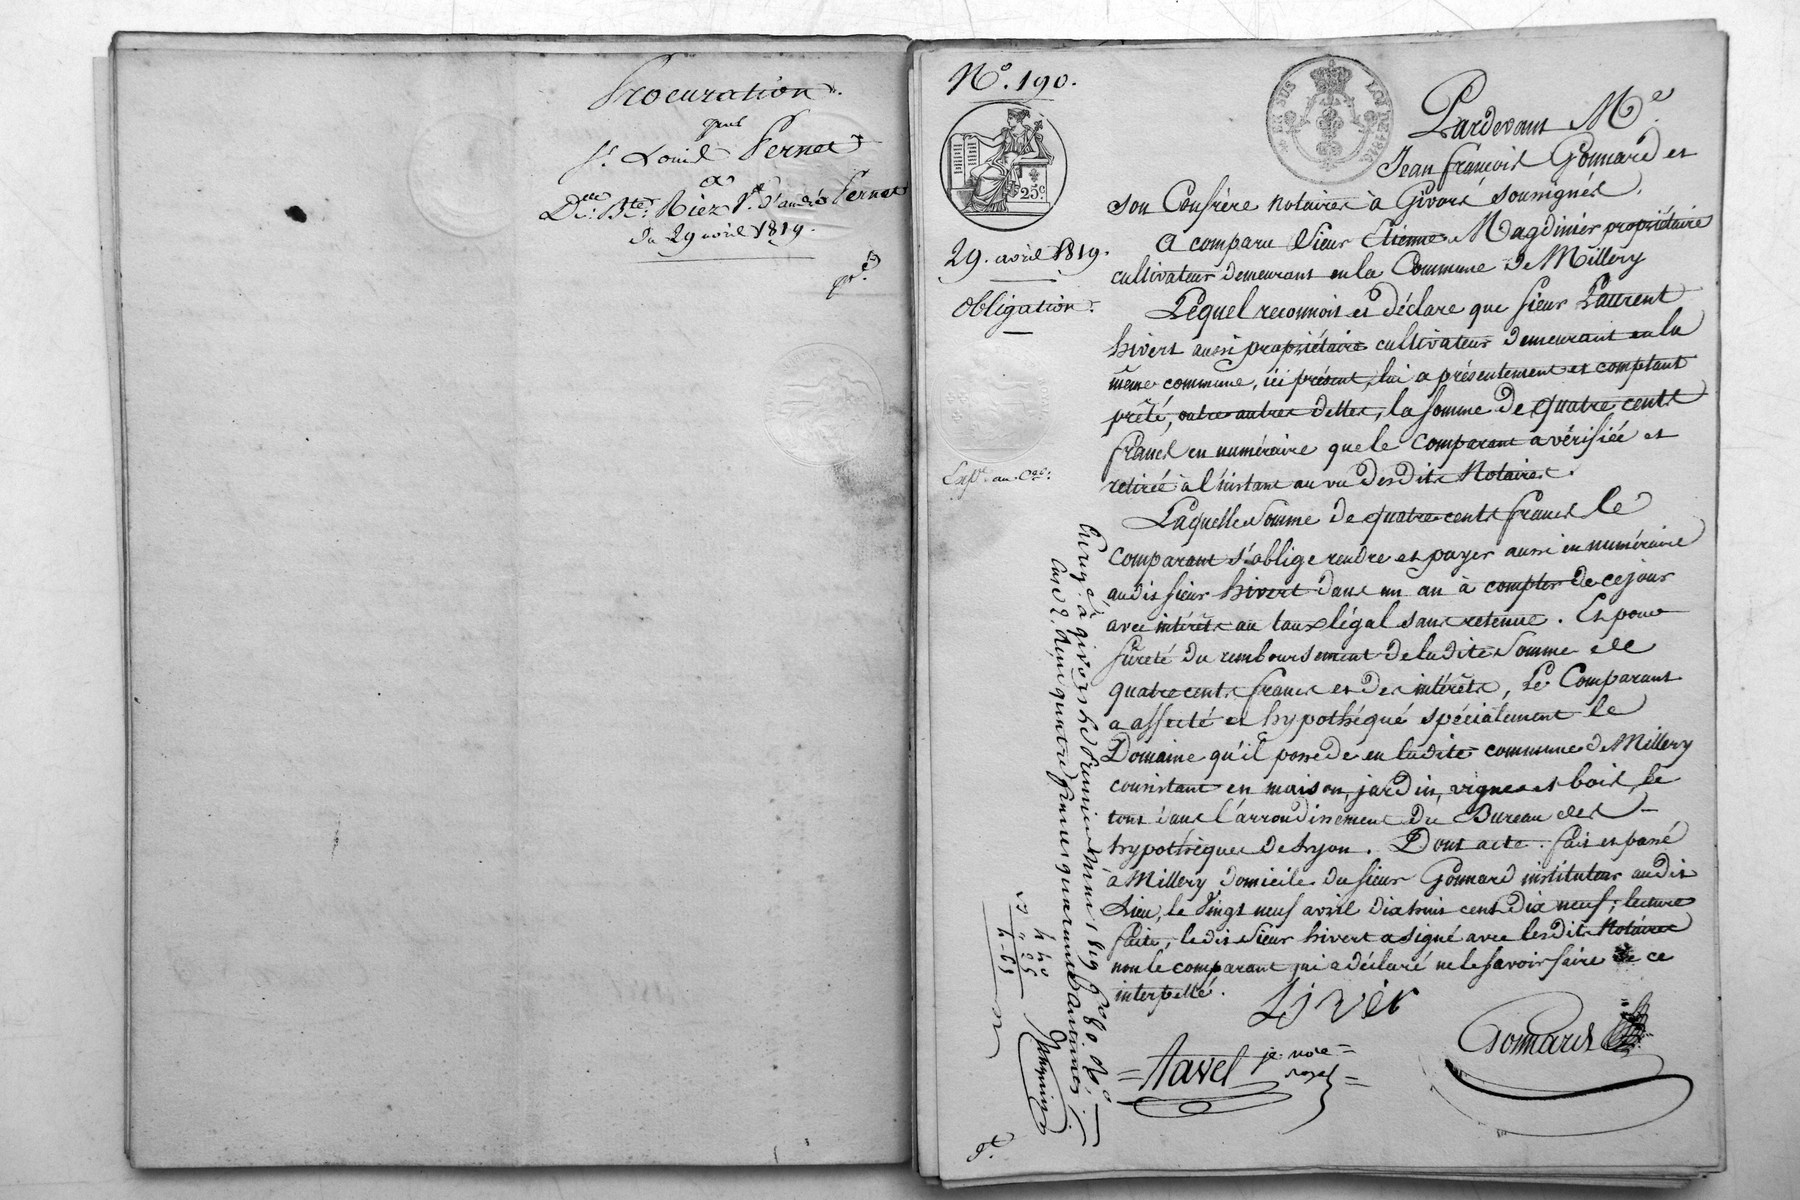 Procuration
par
Sr. Louis Pernet
a
Delle. Bte. Riez Ve. d'andré Pernet
du 29 avril 1819.
No. 190.
25c.
29. avril 1819.
Obligation.
Pardevant Me.
Jean françois Gonnard et
son Confrère notaires à Givors soussignés.
A comparu Sieur Etienne Magdinier propriétaire
cultivateur demeurant en la Commune de Millery
Lequel reconnoit et déclare que sieur Laurent
hivert aussi propriétaire cultivateur demeurant en la
même commune, ici présent, lui a présentement et comptant
prêté, outre autres dettes, la somme de quatre cents
francs en numéraire que le comparant a vérifiée et
retirée à l'instant au vu desdits Notaires.
Laquelle Somme de quatre cents francs le
comparant s'oblige rendre et payer aussi en numéraire
audit sieur hivert dans un an à compter de ce jour
avec intérêts au taux légal sans retenue. Et pour
sûreté du remboursement de ladite Somme de
quatre cents francs et des intérêts, Le Comparant
a affecté et hypothéqué spécialement le
Domaine qu'il possede en ladite commune de Millery
consistant en maison, jardin, vignes et bois, le
tout dans l'arrondissement du Bureau des
hypothèques de Lyon. Dont acte. fait et passé
à Millery domicile du sieur Gonnard instituteur audit
Lieu, le vingt neuf avril dix huit cent dix neuf; lecture
faite, ledit Sieur hivert a signé avec lesdits Notaires
non le comparant qui a déclaré ne le savoir faire de ce
interpellé.
Livér
tavel
Gonnard
Enregé. à givors le premier mai 1819 fo. 80 Ro.
Case 2. Reçu quatre francs quarante centimes
4 40
4-65